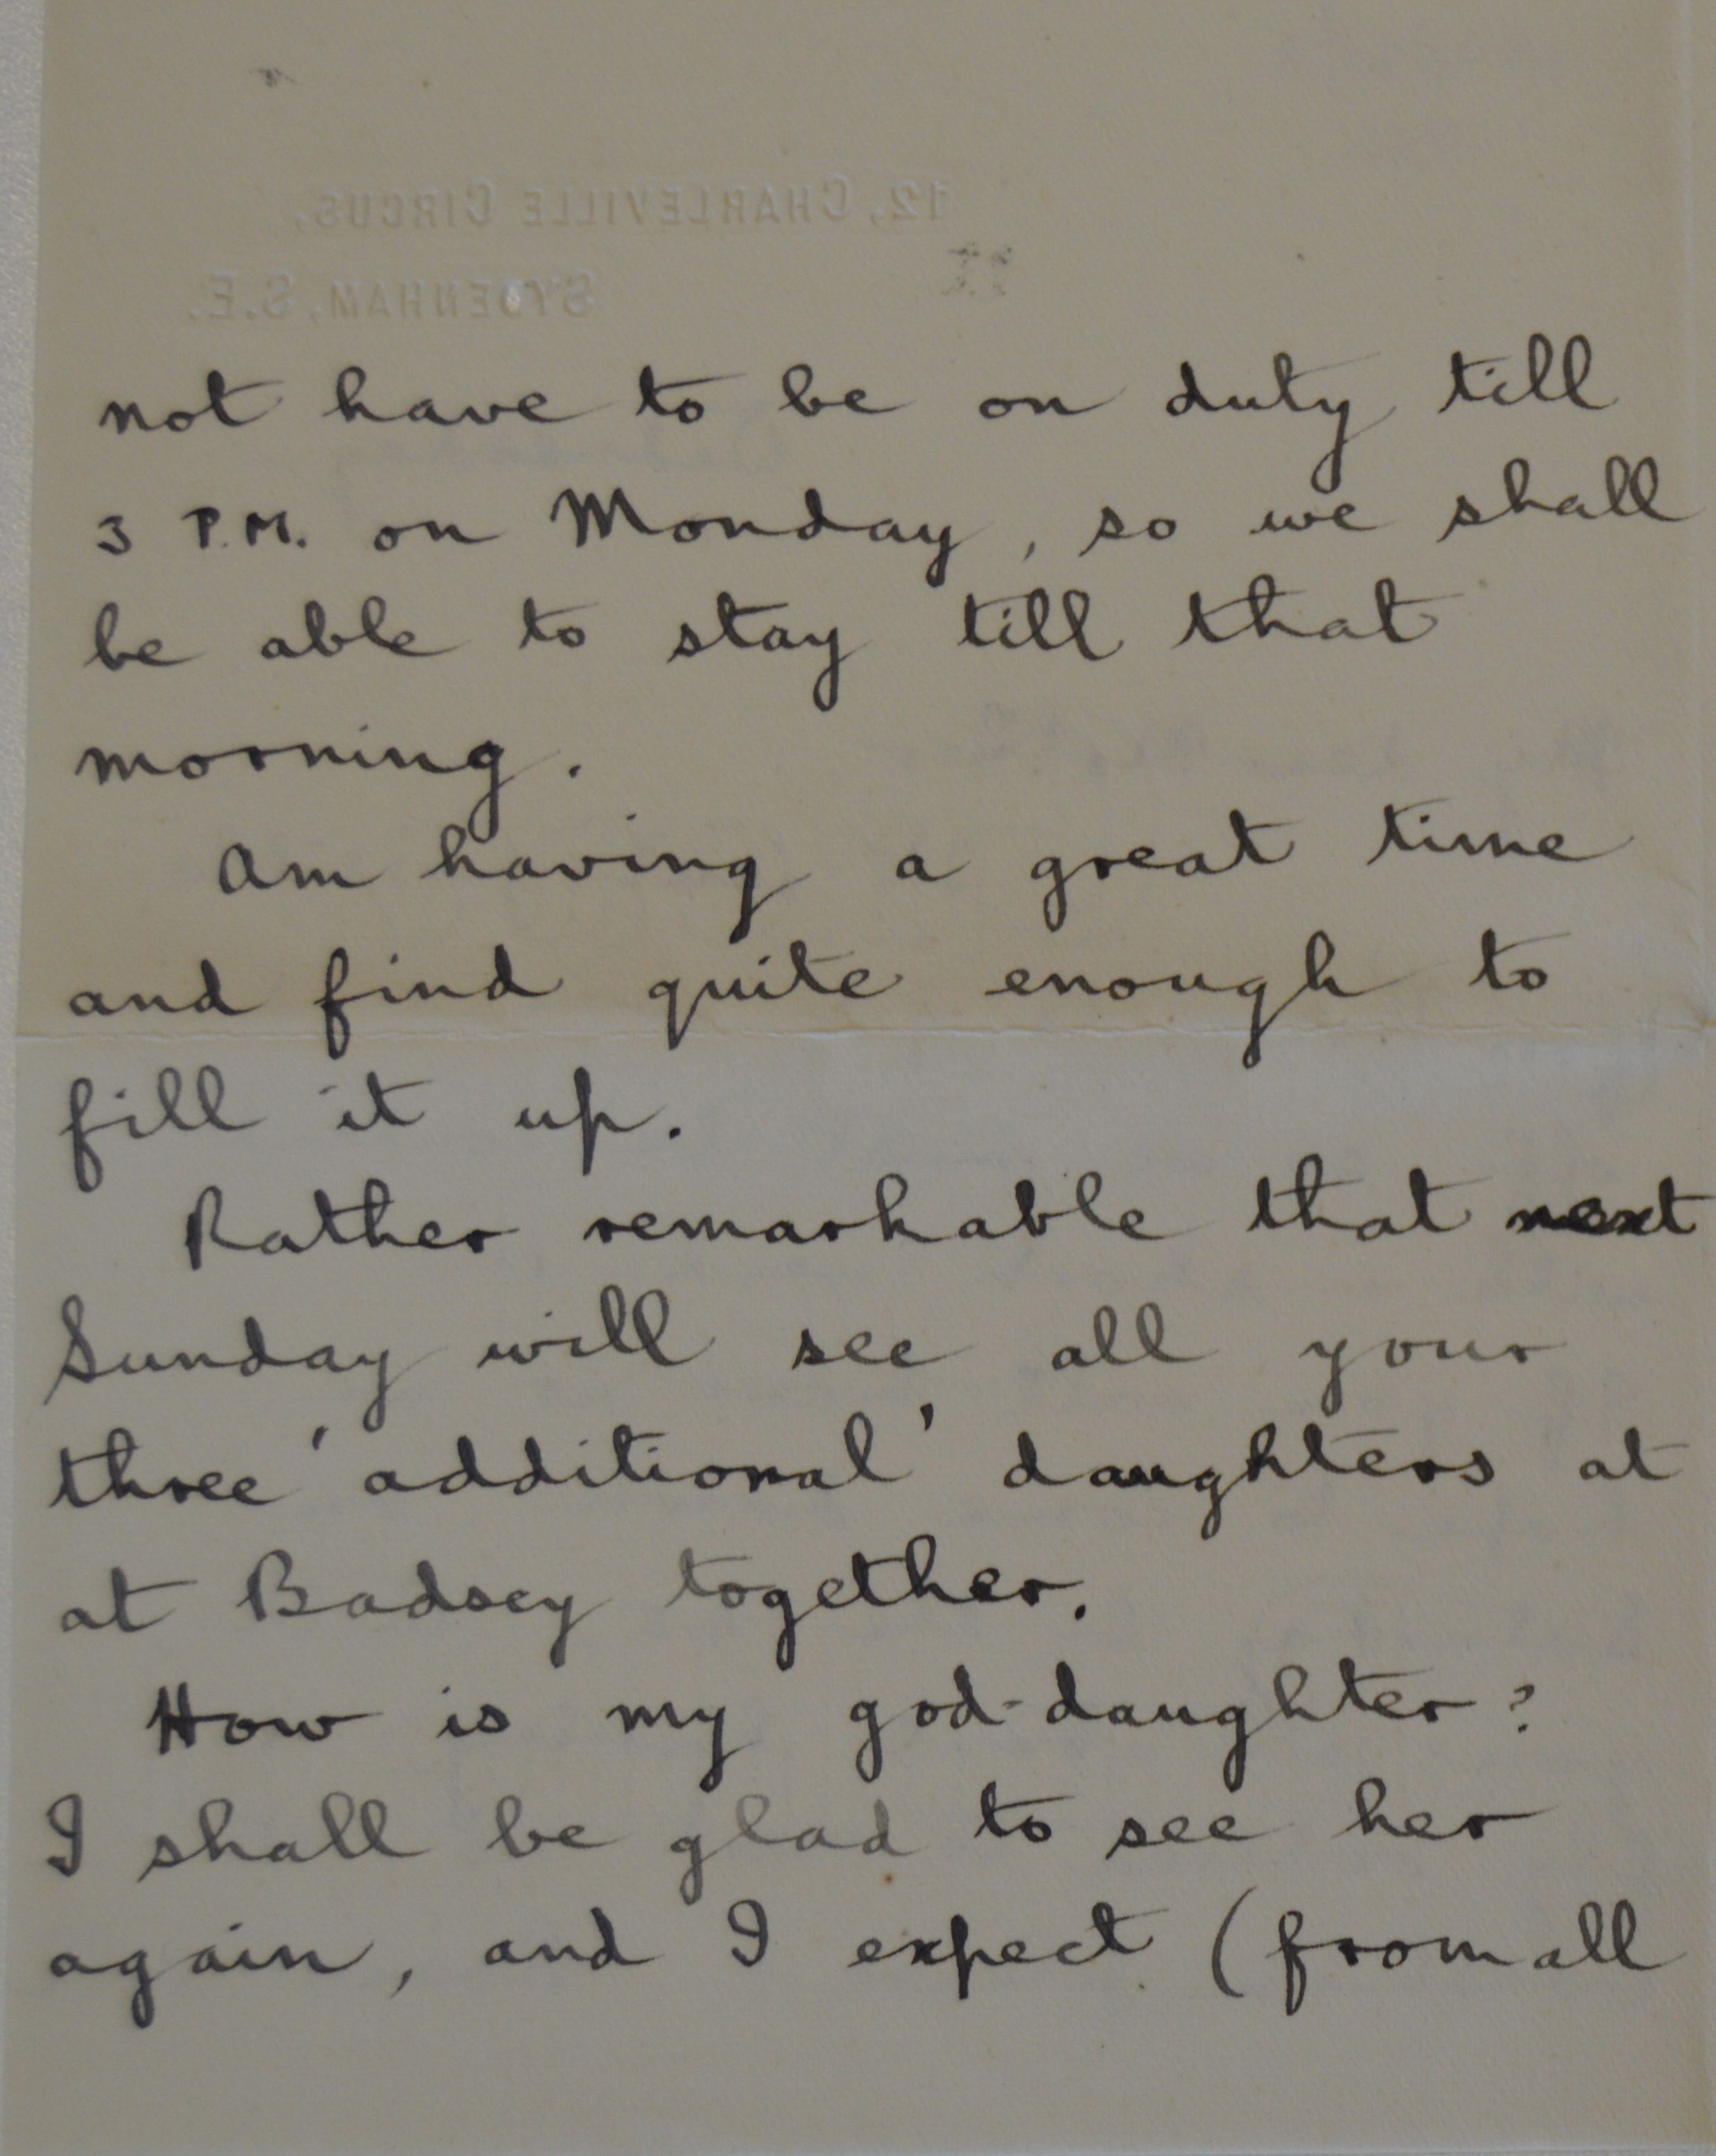 12, CHARLEVILLE CIRCUS,
SYDENHAM, S.E.
not have to be on duty till
3 P.M. on Monday, so we shall
be able to stay till that
morning.
Am having a great time
and find quite enough to
fill it up.
Rather remarkable that next
Sunday will see all your
three 'additional' daughters at
at Badsey together.
How is my god-daughter?
I shall be glad to see her
again, and I expect (from all